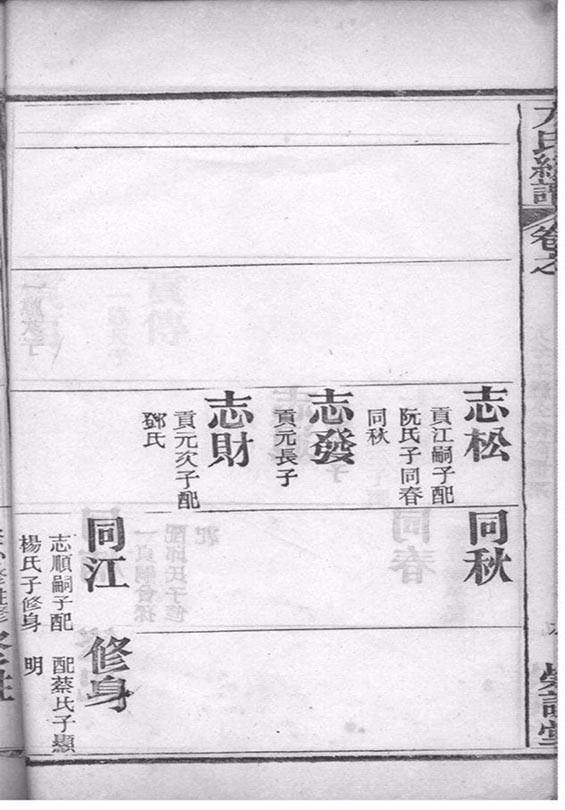 方氏總譜
卷之
志松
貢江嗣子配
阮氏子同春
同秋
志發
貢元長子
志財
貢元次子配
鄧氏
同秋
同江
志順嗣子配
楊氏子修身
修身
配蔡氏子顯
明